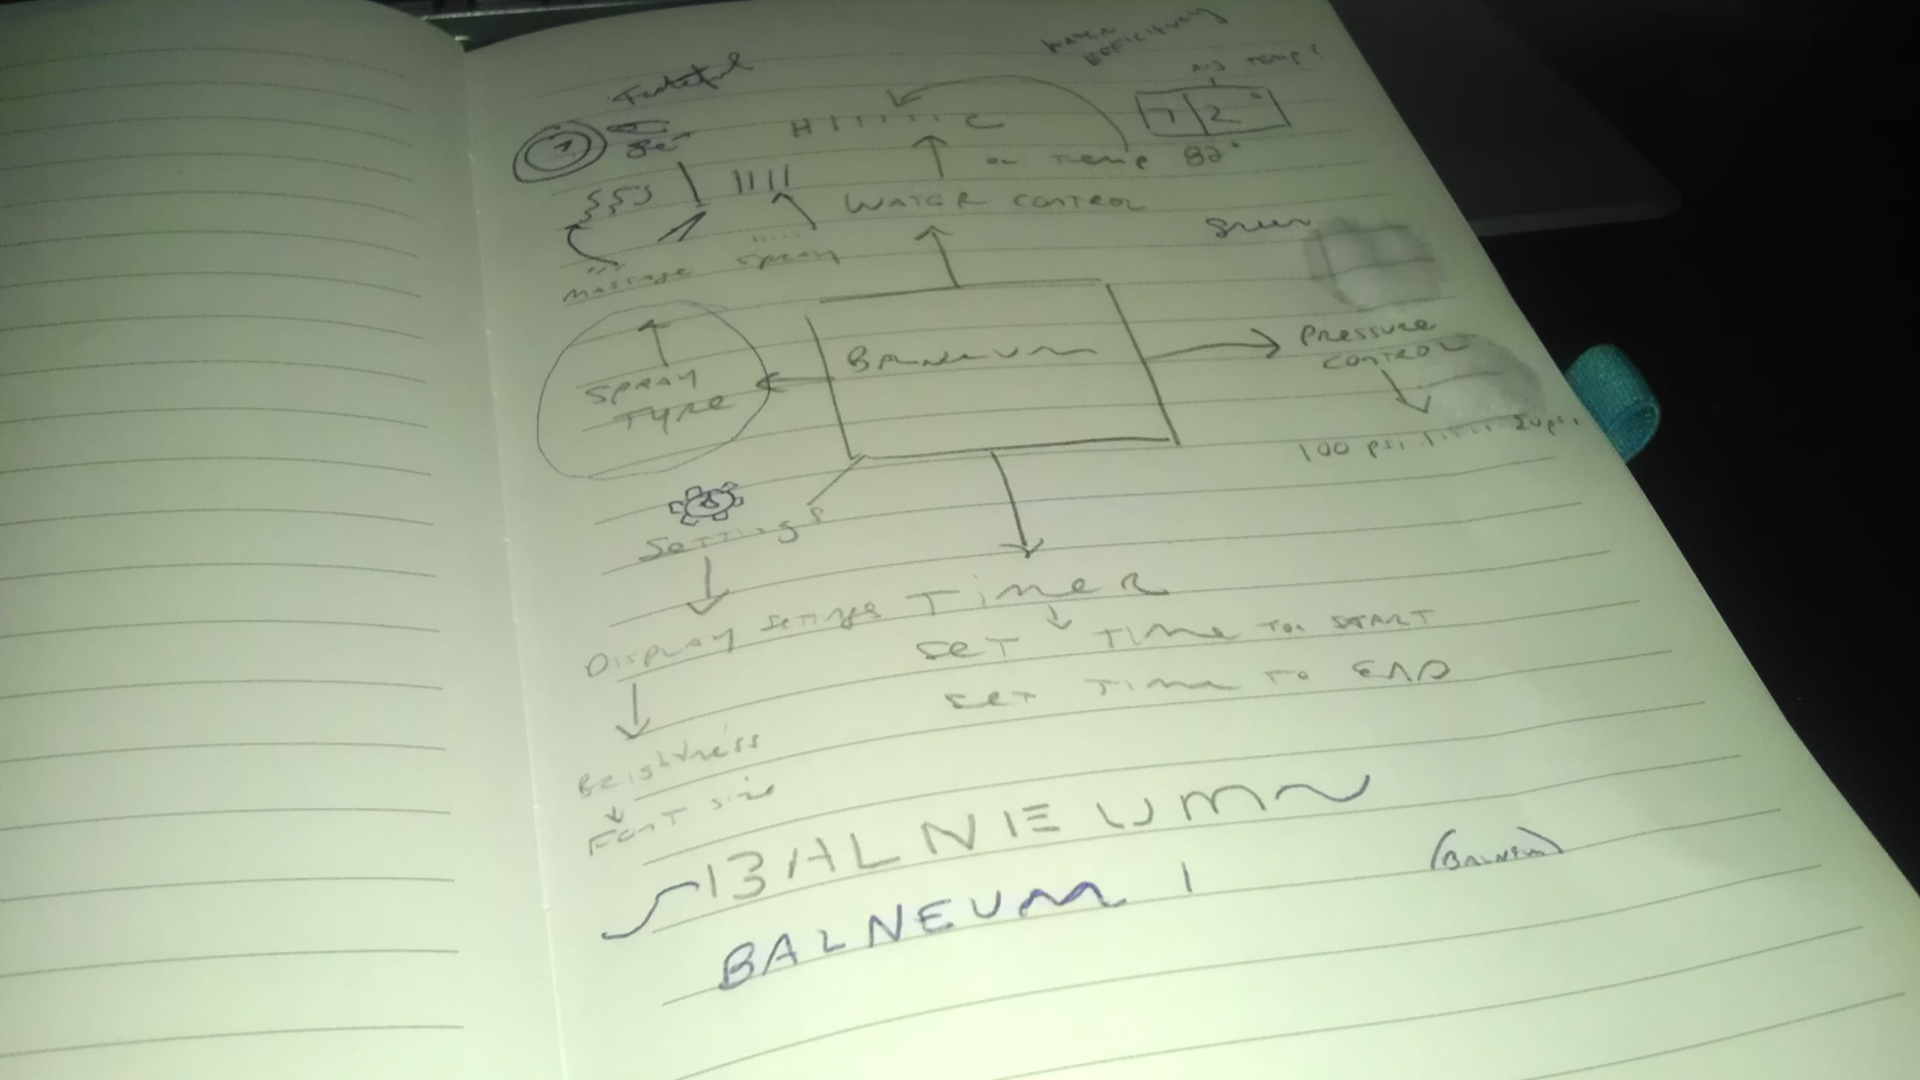 WATER
EFFICIENCY
Tasteful
AVG TEMP?
72°
H C
Set
or Temp 82°
WATER CONTROL
Green
massage spray
BALNEUM
Pressure
CONTROL
SPRAY
TYPE
100 psi 20psi
Settings
Display settings
TimeR
SET TIME To START
SET TIME TO END
Brightness
Font size
BALNIEUM
(BALNEUM)
BALNEUM 1